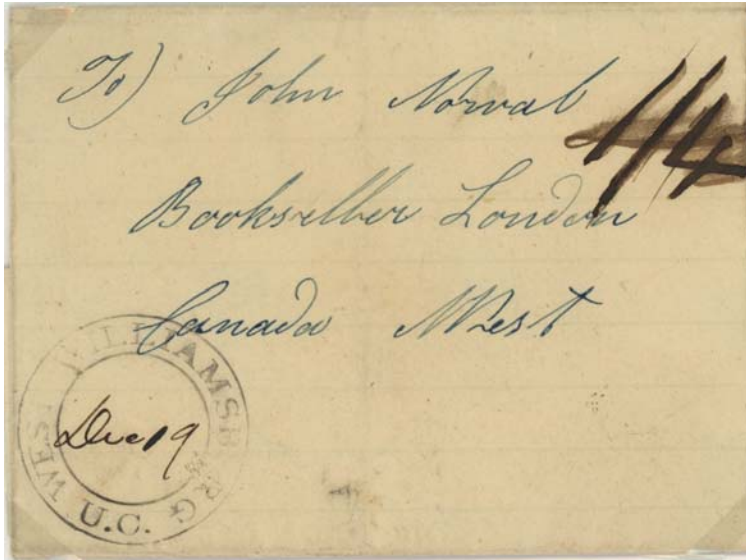 To) John Norval
1/4
Bookseller London
Canada West
WILLIAMSBURG WEST U.C.
Dec 19